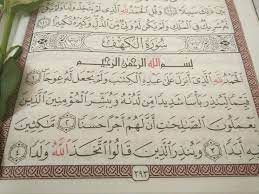 شَرِيكٌ فِى ٱلْمُلْكِ وَلَمْ يَكُن لَّهُۥ وَلِىٌّ مِّنَ ٱلذُّلِّ
سُورَةُ الْكَهْفِ
بِسْمِ ٱللَّهِ ٱلرَّحْمَٰنِ ٱلرَّحِيمِ
ٱلْحَمْدُ لِلَّهِ ٱلَّذِىٓ أَنزَلَ عَلَىٰ عَبْدِهِ ٱلْكِتَٰبَ وَلَمْ يَجْعَل لَّهُۥ عِوَجَاۜ ١
قَيِّمًا لِّيُنذِرَ بَأْسًا شَدِيدًا مِّن لَّدُنْهُ وَيُبَشِّرَ ٱلْمُؤْمِنِينَ ٱلَّذِينَ
يَعْمَلُونَ ٱلصَّٰلِحَٰتِ أَنَّ لَهُمْ أَجْرًا حَسَنًا ٢ مَّٰكِثِينَ
فِيهِ أَبَدًا ٣ وَيُنذِرَ ٱلَّذِينَ قَالُوا۟ ٱتَّخَذَ ٱللَّهُ وَلَدًا ٤
٢٩٣